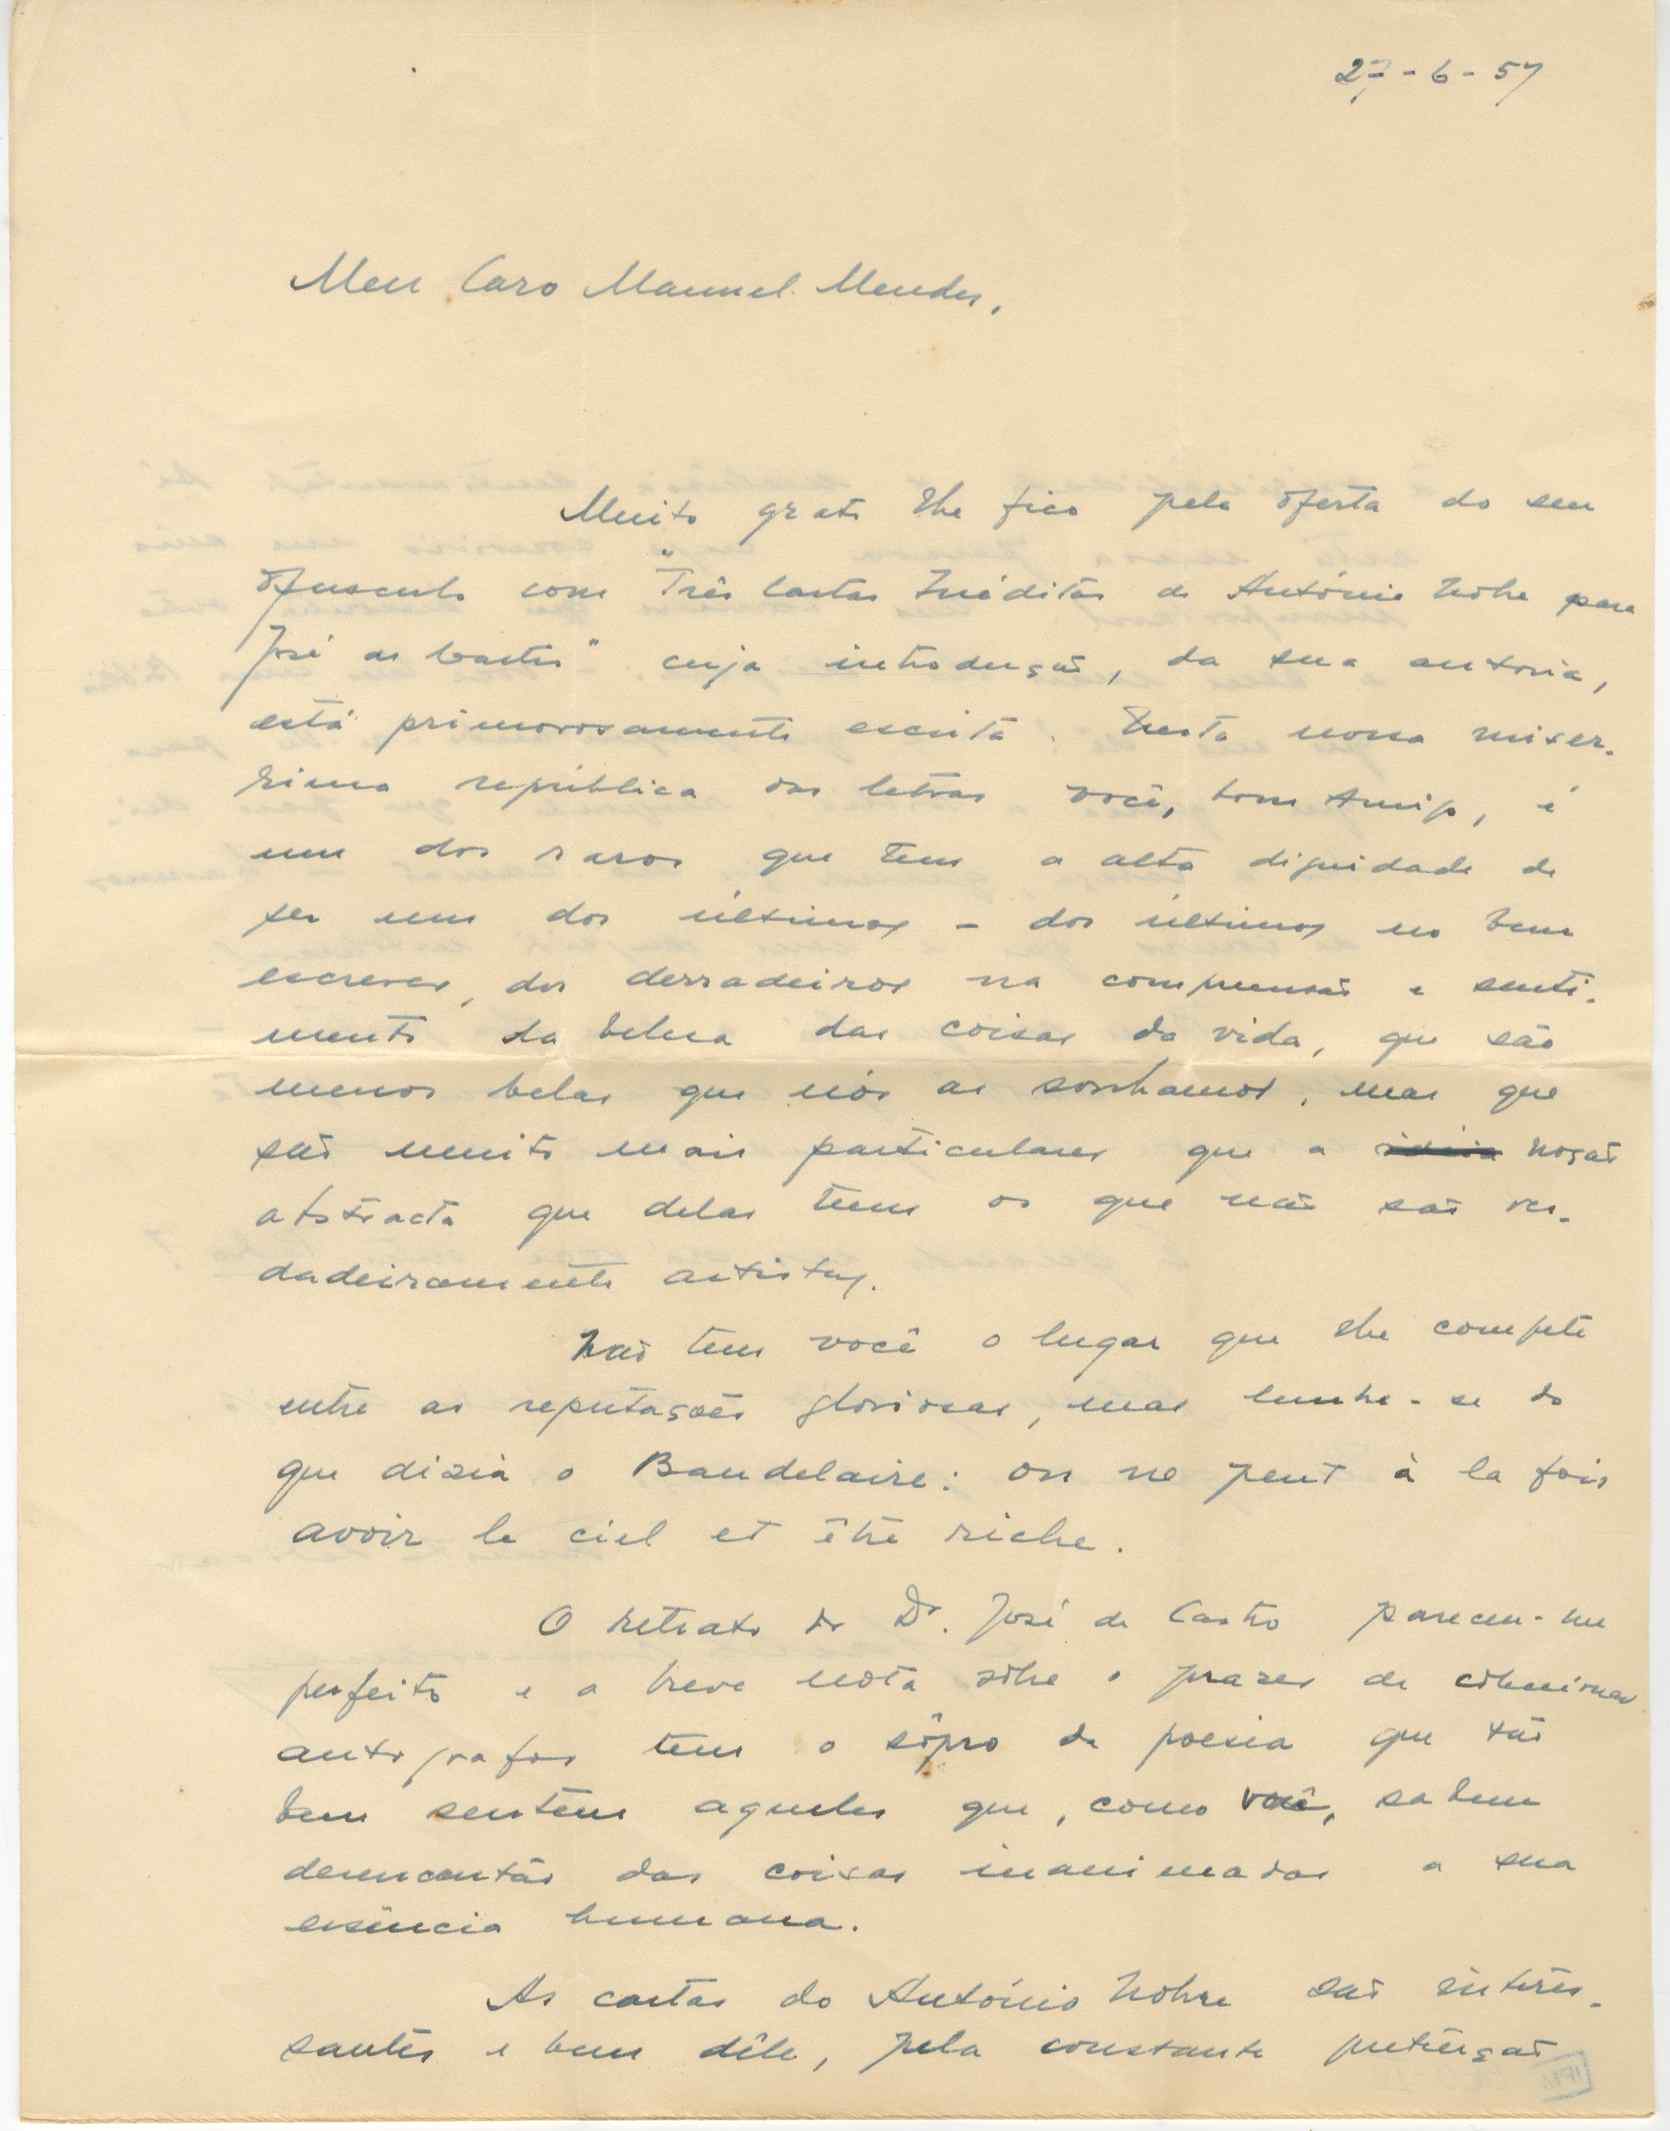 27-6-57
Meu Caro Manuel Mendes,
Muito grato lhe fico pela oferta do seu
opusculo com "Três Cartas Inéditas de António Nobre para
José de Castro" cuja introdução, da sua autoria,
está primorosamente escrita. Nesta nossa miser-
rima república das letras você, bom Amigo, é
um dos raros que tem a alta dignidade de
ser um dos últimos - dos últimos no bem
escrever, dos derradeiros na compreensão e senti-
mento da beleza das coisas da vida, que são
menos belas que nós as sonhamos, mas que
são muito mais particulares que a noção
abstracta que delas tem os que não são ver-
dadeiramente artistas.
Não tem você o lugar que lhe compete
entre as reputações gloriosas, mas lembre-se do
que dizia o Baudelaire: on ne peut à la fois
avoir le ciel et être riche.
O retrato do Dr. José de Castro pareceu-me
perfeito e a breve nota sôbre o prazer de coleccionar
autografos tem o sôpro de poesia que tão
bem sentem aqueles que, como você, sabem
desencantar das coisas inanimadas a sua
essência humana.
As cartas do António Nobre são interes-
santes e bem dêle, pela constante pretenção